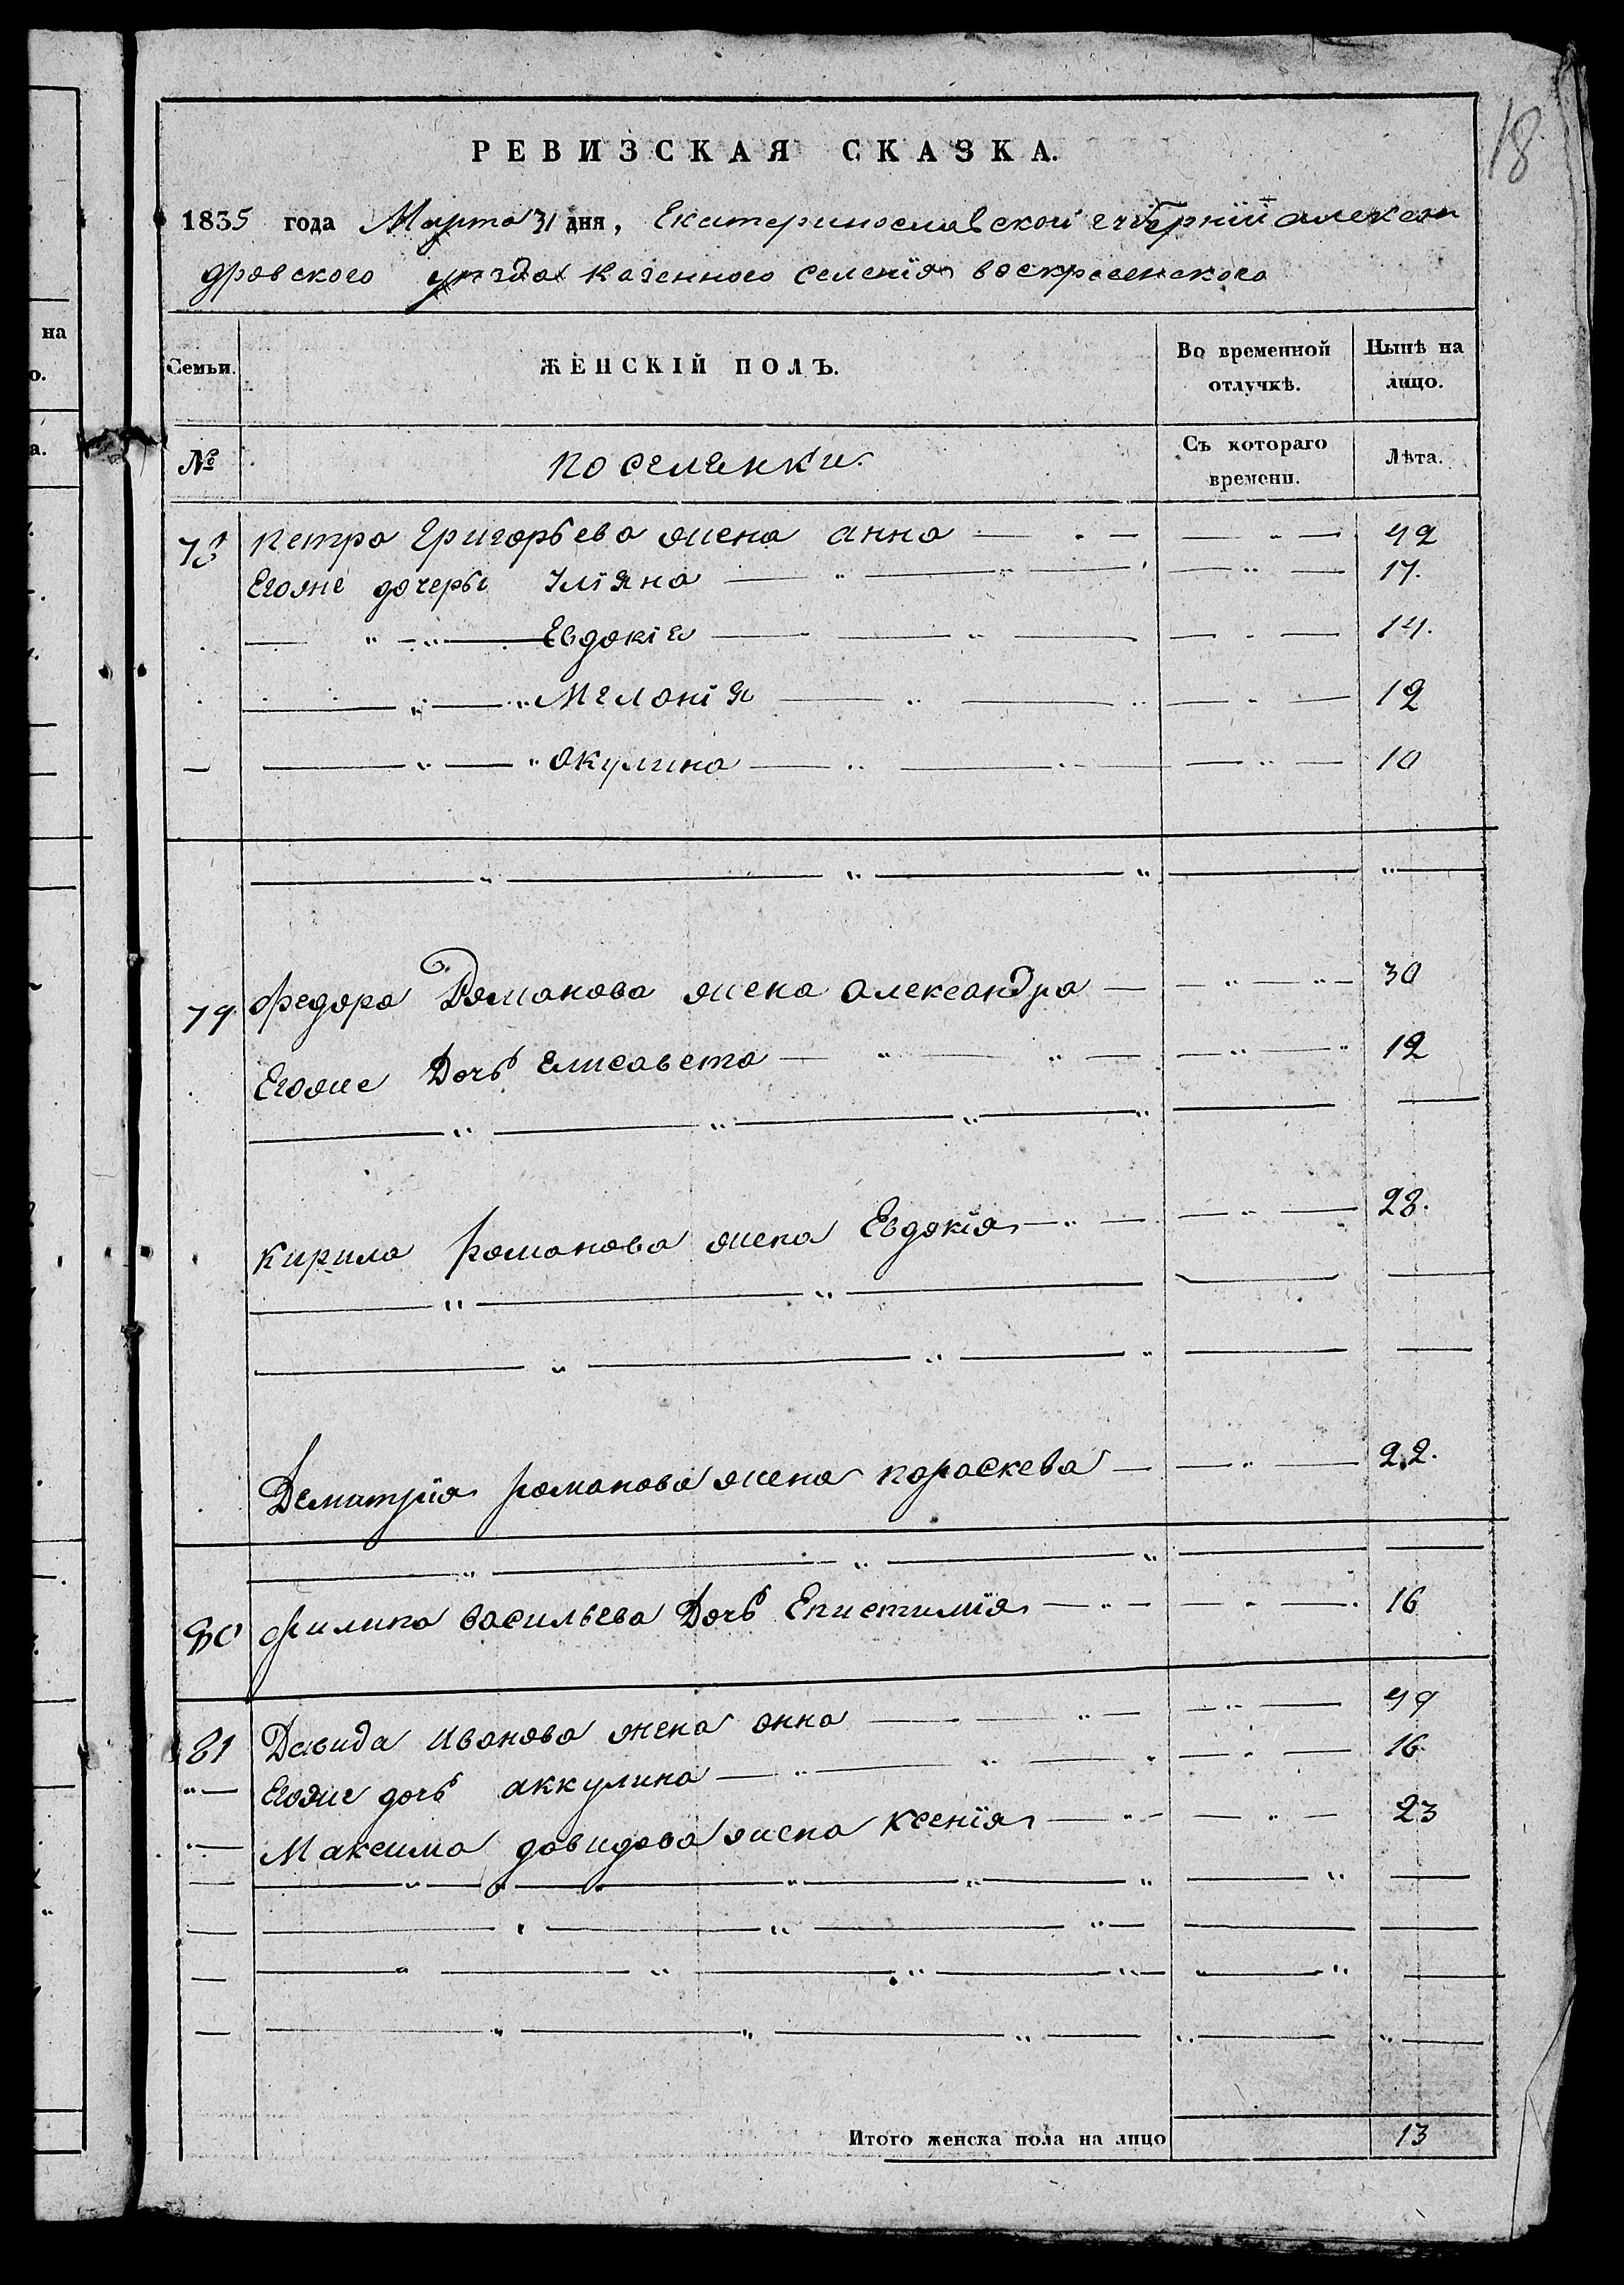 18
РЕВИЗСКАЯ СКАЗКА.
1835 года Марта 31 дня, Екатеринославской губернïи алексан
дровского уезда казенного селенïя воскресенского
на
о.
а.
Семьи. ЖЕНСКІЙ ПОЛЪ. Во временной отлучкѣ. Нынѣ на лицо.
№ поселенки. Съ котораго времени. Лѣта.
78 петра Григорьева жена анна 42
Егоже дочеры Улïяна 17.
Евдокïя 14.
Меланïя 12
Окулина 10
79 федора Романова жена александра 30
Егоже Дочь елисавета 12
кирила романова жена Евдокïя 28.
Дематрïя романова жена параскева 22.
80 филипа васильева Дочь Епистимïя 16
81 Давида иванова жена анна 49
Егоже дочь аккулина 16
Максима давидова жена ксенïя 23
Итого женска пола на лицо 13